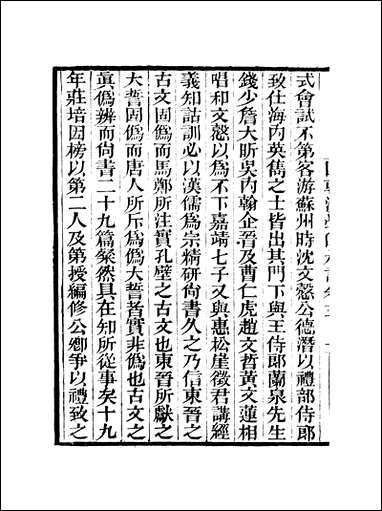 式會試不第客游蘇州時沈文慤公德潛以禮部侍郎
致仕海內英雋之士皆出其門下與王侍郎蘭泉先生
錢少詹大昕吳內翰企晉及曹仁虎趙文哲黃文蓮相
唱和文慤以為不下嘉靖七子又與惠松崖徵君講經
義知詁訓必以漢儒為宗精研尚書久之乃信東晉之
古文固偽而馬鄭所注實孔壁之古文也東晉所獻之
大誓固偽而唐人所斥為偽大誓者實非偽也古文之
眞偽辨而尚書二十九篇粲然具在知所從事矣十九
年莊培因榜以第二人及第授編修公卿爭以禮致之